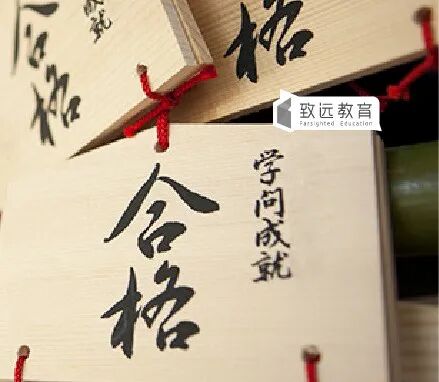 成就
合格
格
致远教育
Farsighted Education
学問成就
合格